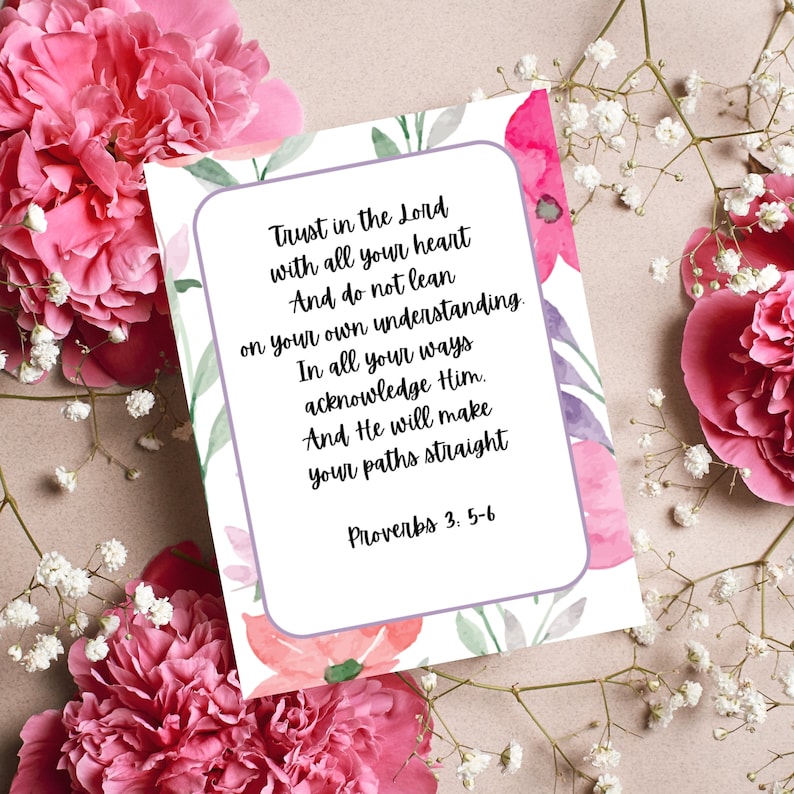 Trust in the Lord
with all your heart
And do not lean
on your own understanding.
In all your ways
acknowledge Him,
And He will make
your paths straight
Proverbs 3: 5-6